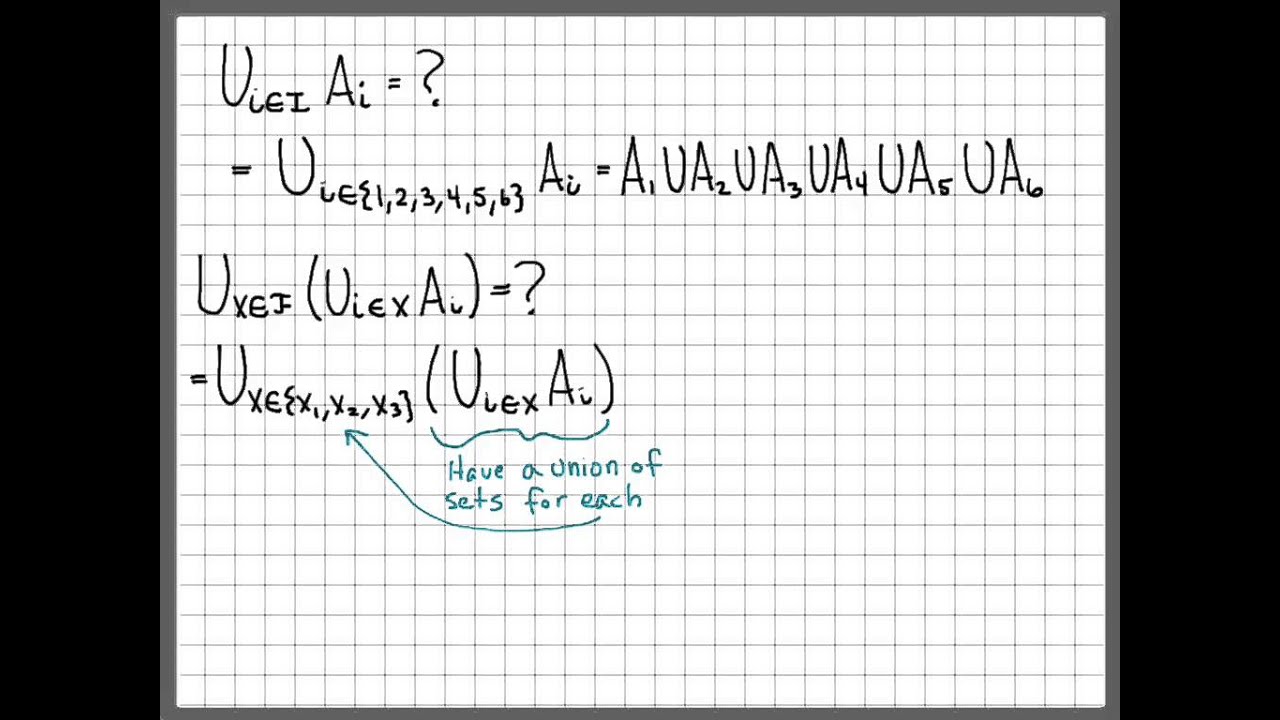 U_{i∈I} A_i = ?
= U_{i∈{1,2,3,4,5,6}} A_i = A_1 U A_2 U A_3 U A_4 U A_5 U A_6
U_{X∈F} (U_{i∈X} A_i) = ?
= U_{X∈{X_1,X_2,X_3}} (U_{i∈X} A_i)
Have a union of
sets for each